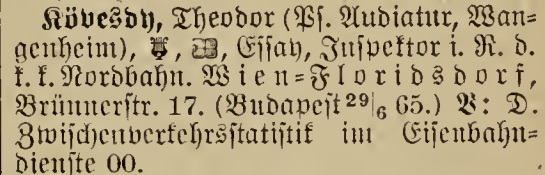 Kövesdy, Theodor (Ps. Audiatur, Wan-
genheim), Essay, Inspektor i. R. d.
k. k. Nordbahn. Wien-Floridsdorf,
Brünnerstr. 17. (Budapest 29|6 65.) V: D.
Zwischenverkehrsstatistik im Eisenbahn-
dienste 00.